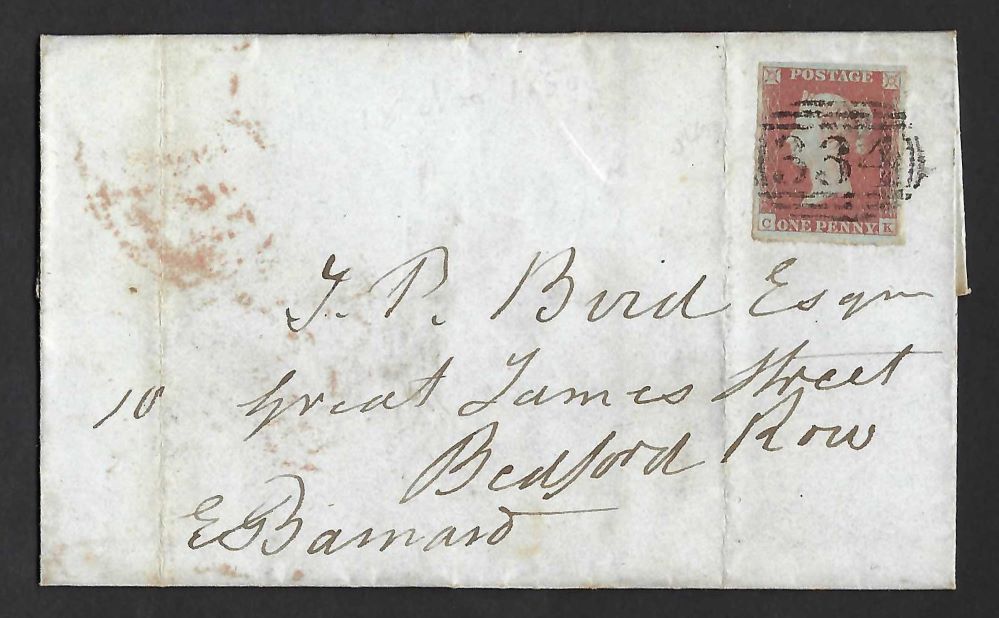 POSTAGE
334
C ONE PENNY K
J. P. Bird Esqr
10 Great James Street
Bedford Row
E Barnard